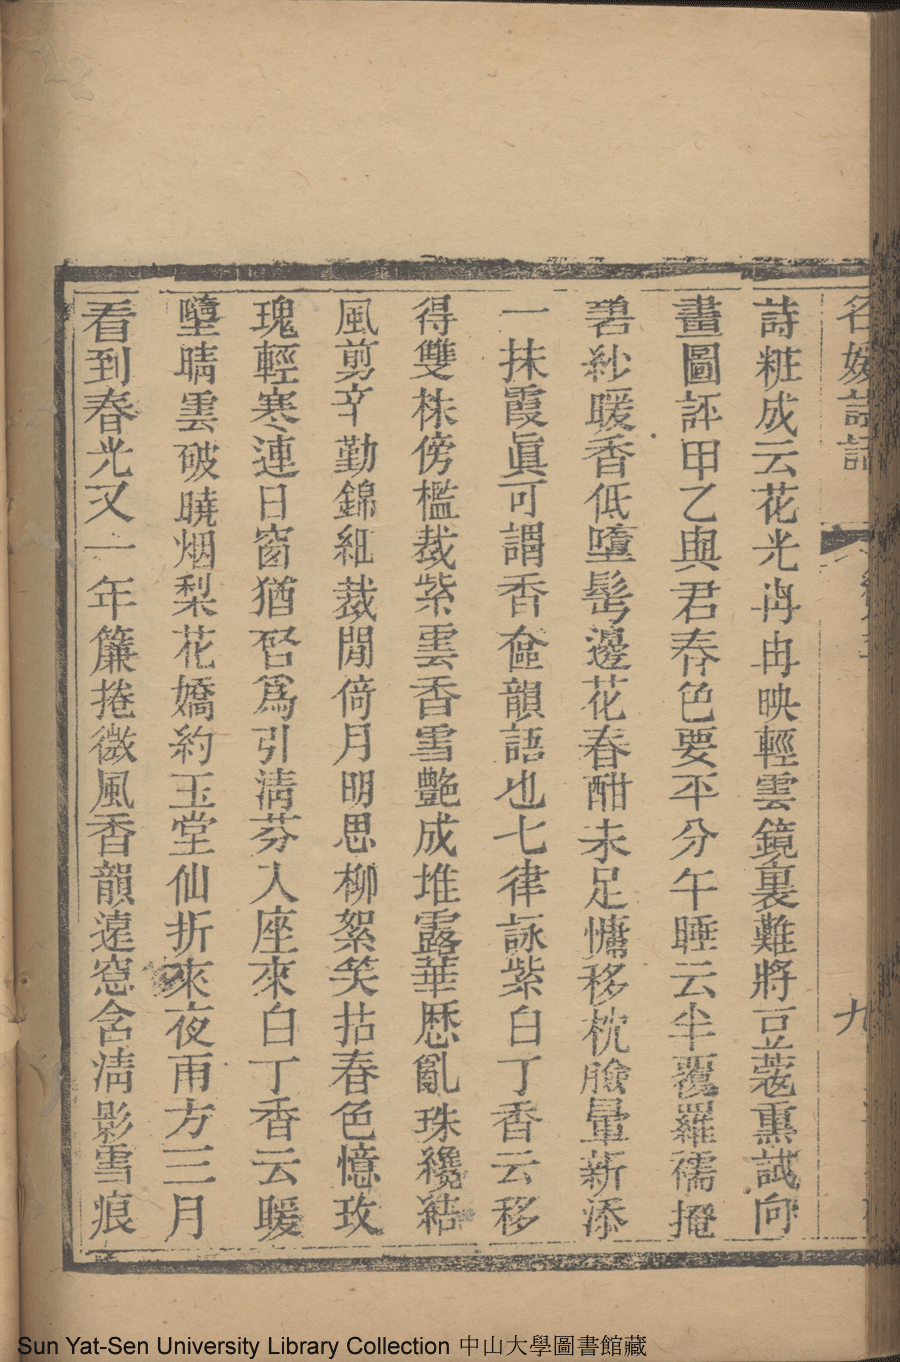 名媛詩話
九
詩粧成云花光冉冉映輕雲鏡裏難將豆蔻熏試向
畫圖評甲乙與君春色要平分午睡云半覆羅襦掩
碧紗暖香低墮髩邊花春酣未足慵移枕臉暈新添
一抹霞眞可謂香奩韻語也七律詠紫白丁香云移
得雙株傍檻栽紫雲香雪艷成堆露華歷亂珠纔結
風剪辛勤錦細裁閒倚月明思柳絮笑拈春色憶玫
瑰輕寒連日窗猶啓爲引淸芬入座來白丁香云暖
墮晴雲破曉烟梨花嬌約玉堂仙折來夜雨方三月
看到春光又一年簾捲微風香韻遠窓含淸影雪痕
Sun Yat-Sen University Library Collection 中山大學圖書館藏